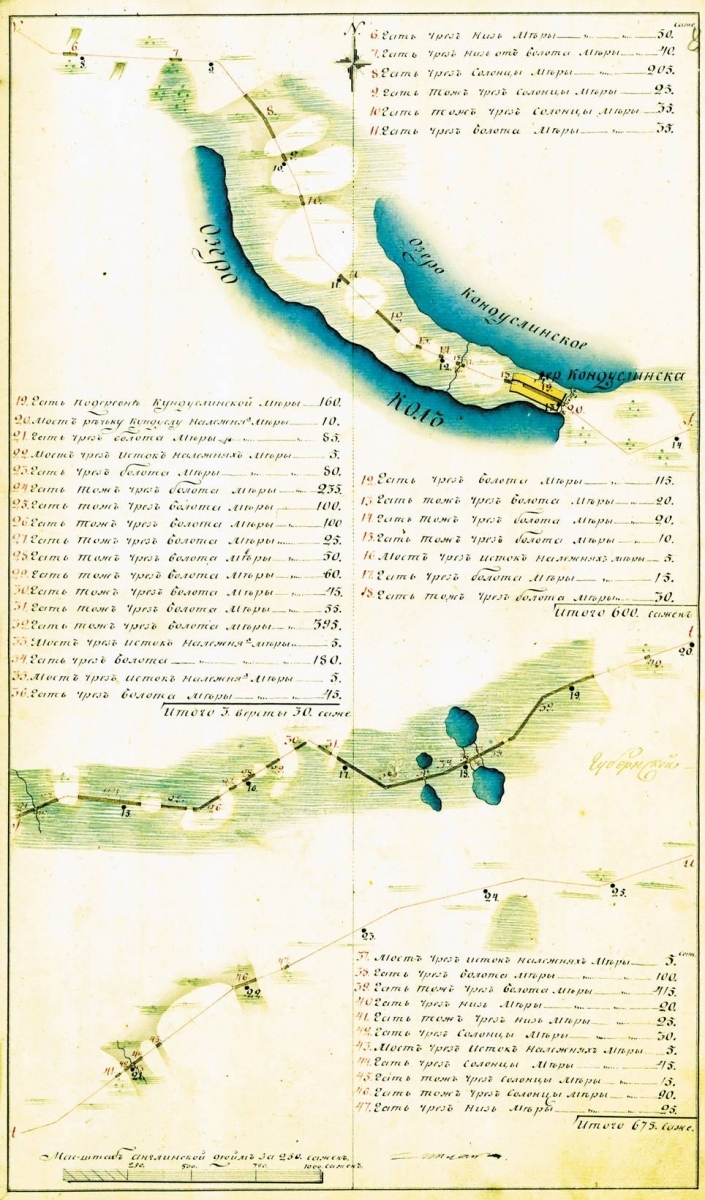 N
саже.
6. Гать чрез Низь Мѣры 50.
7. Гать чрез Низь отъ болота Мѣры 40.
8. Гать чрезъ Солонцы Мѣры 205.
9. Гать тожъ чрезъ Солонцы Мѣры 25.
10. Гать тожъ чрезъ Солонцы Мѣры 35.
11. Гать чрезъ болота Мѣры 35.
Озеро
Озеро Кондуслинское
дер. Кондуслинска
Колѣ
19. Гать подеревнѣ Кундуслинской Мѣры 160.
20. Мостъ рѣчьку Кундуслу Мѣры 10.
21. Гать чрезъ болота Мѣры 85.
22. Мостъ чрезъ Истокъ належнѧхъ Мѣры 5.
23. Гать чрезъ болота Мѣры 80.
24. Гать тожъ чрезъ болота Мѣры 235.
25. Гать тожъ чрезъ болота Мѣры 100.
26. Гать тожъ чрезъ волота Мѣры 100
27. Гать тожъ чрезъ болота Мѣры 25.
28. Гать тожъ чрезъ болота Мѣры 50.
29. Гать тожъ чрезъ волота Мѣры 60.
30. Гать тожъ чрезъ волота Мѣры 45.
31. Гать тожъ чрезъ волота Мѣры 55.
32. Гать тожъ чрезъ волота Мѣры 395.
33. Мостъ чрезъ истокъ Мѣры 5.
34. Гать чрезъ волота 180.
35. Мостъ чрезъ Истокъ Мѣры 5.
36. Гать чрезъ болота Мѣры 45.
Итого 3. версты 30. саже
12. Гать чрезъ волота Мѣры 115.
13. Гать тожъ чрезъ волота Мѣры 20.
14. Гать тожъ чрезъ болота Мѣры 20.
15. Гать тожъ чрезъ болота Мѣры 10.
16. Мостъ чрезъ истокъ Мѣры 5.
17. Гать чрезъ болота Мѣры 15.
18. Гать тожъ чрезъ болота Мѣры 30.
Итого 600. саженъ
Губернской
37. Мостъ чрезъ истокъ належняхъ Мѣры 5.
38. Гать чрезъ волота Мѣры 100.
39. Гать тожъ чрезъ волота Мѣры 415.
40. Гать чрезъ низь Мѣры 20.
41. Гать тожъ чрезъ низь Мѣры 25.
42. Гать чрезъ Солонцы Мѣры 30.
43. Мостъ чрезъ Истокъ належняхъ Мѣры 5.
44. Гать чрезъ Солонцы Мѣры 45.
45. Гать тожъ чрезъ солонцы Мѣры 15.
46. Гать тожъ чрезъ Солонцы Мѣры 90.
47. Гать чрезъ Низь Мѣры 25.
Итого 675. Саже.
Масштабъ англинской дюймъ за 250. саженъ.
250. 500. 750. 1000. саженъ.